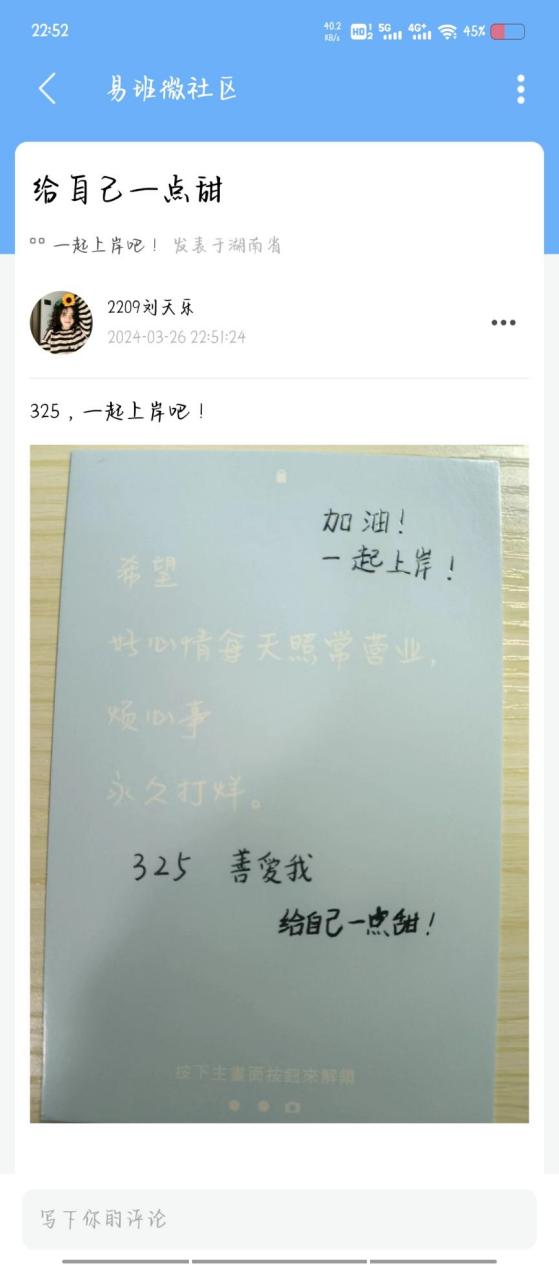 22:52
40.2 KB/s HD 1 2 5G 4G+ 45%
易班微社区
给自己一点甜
一起上岸吧！ 发表于湖南省
2209刘天乐
2024-03-26 22:51:24
325，一起上岸吧！
加油！
一起上岸！
希望
好心情每天照常营业，
烦心事
永久打烊。
325 善爱我
给自己一点甜！
按下主畫面按鈕來解鎖
写下你的评论